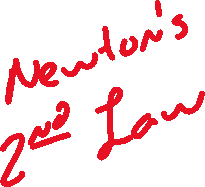 Newton's
2nd Law